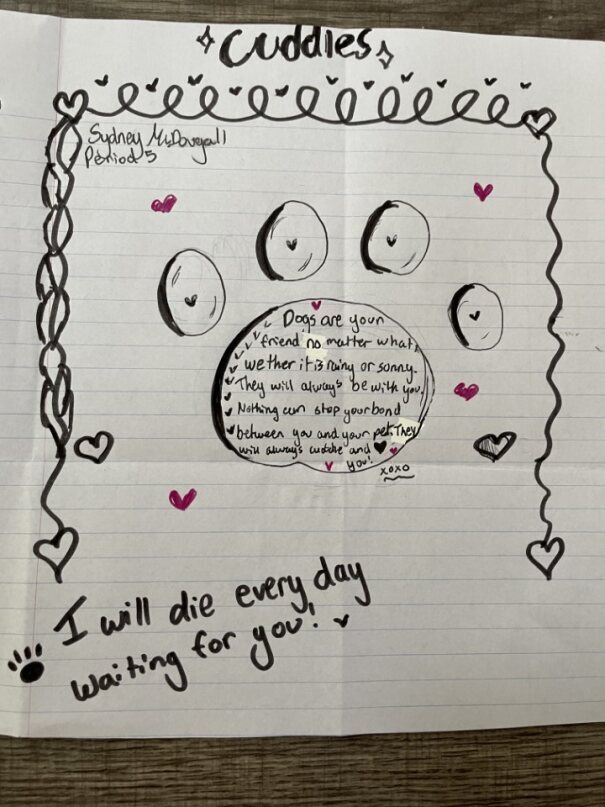 Cuddles
Sydney McDougall
Period 5
Dogs are your
friend no matter what,
wether it is rainy or sunny.
They will always be with you.
Nothing can stop your bond
between you and your pet. They
will always cuddle and ♥
you!
xoxo
I will die every day
waiting for you!